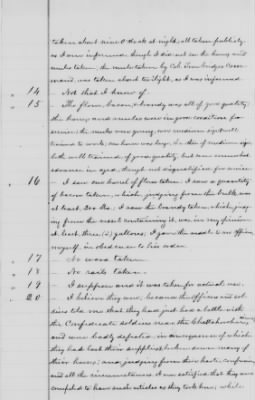 taken about nine O'clock at night, all taken publicly,
as I am informed though I did not see the horse and
mules taken, the mules taken by Col. Trowbridges Com-
mand was taken about twilight, as I was informed
14 Not that I know of.
15 The flour, bacon, & brandy was all of good quality;
the horse and mules were in good condition for
service; the mules were young, and medium size & well
trained to work; one horse was large, the other of medium size
both well trained, of good quality but one somewhat
advanced in age, though not disqualified for service
16 I saw one barrel of flour taken. I saw a quantity
of bacon taken, which judging from the bulk was
at least, 200 lbs. I saw the brandy taken, which judg-
ing from the vessel containing it, was in my opinion
at least, three (3) gallons; I gave the vessel to an officer
myself, in obedience to his order.
17 No wood taken
18 No rails taken.
19 I suppose and it was taken for actual use.
20 I believe they were, because the officers and sol-
diers told me that they had just had a battle with
the Confederate soldiers near the Chattahoochee,
and were badly defeated, in consequence of which
they had lost their supplies, and many of
their horses; and judging from their haste, confusion
and all the circumstances I was satisfied that they were
compelled to have such articles as they took here, while